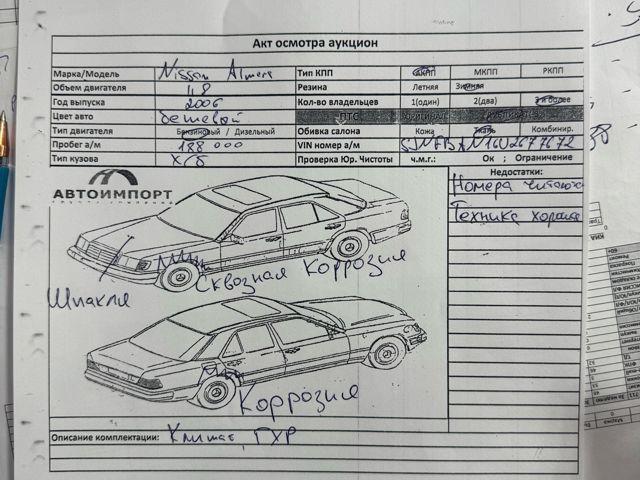 Акт осмотра аукцион
Марка/Модель Nissan Almera Тип КПП АКПП МКПП РКПП
Объем двигателя 1,8 Резина Летняя Зимняя
Год выпуска 2006 Кол-во владельцев 1(один) 2(два) 3 и более
Цвет авто бежевый ПТС
Тип двигателя Бензиновый / Дизельный Обивка салона Кожа Ткань Комбинир.
Пробег а/м 188 000 VIN номер а/м
Тип кузова Х/б Проверка Юр. Чистоты ч.м.г.: Ок ; Ограничение
АВТОИМПОРТ
Недостатки:
Номера читаются
Техника хорошая
Сквозная Коррозия
Шпакля
Коррозия
Описание комплектации: Климат, ГУР